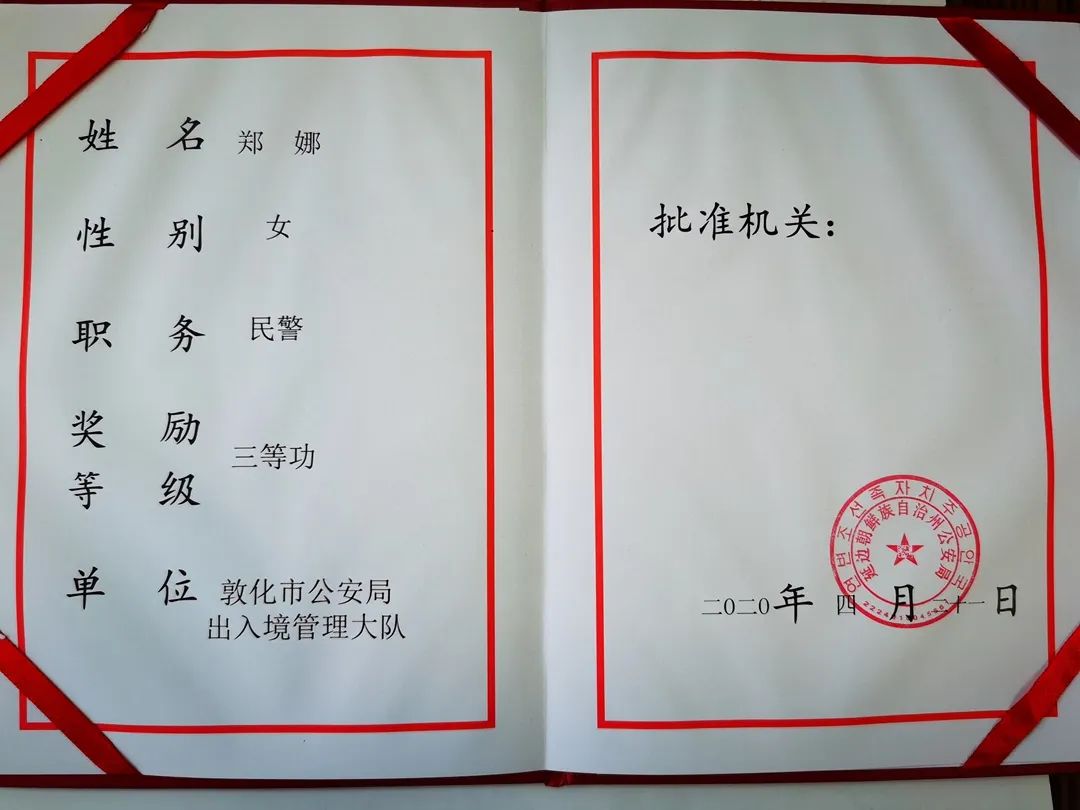 姓 名 郑 娜
性 别 女
职 务 民警
奖 励
等 级 三等功
单 位 敦化市公安局
出入境管理大队
批准机关：
연변조선족자치주공안국
延边朝鲜族自治州公安局
二〇二〇年 四 月 二十一 日